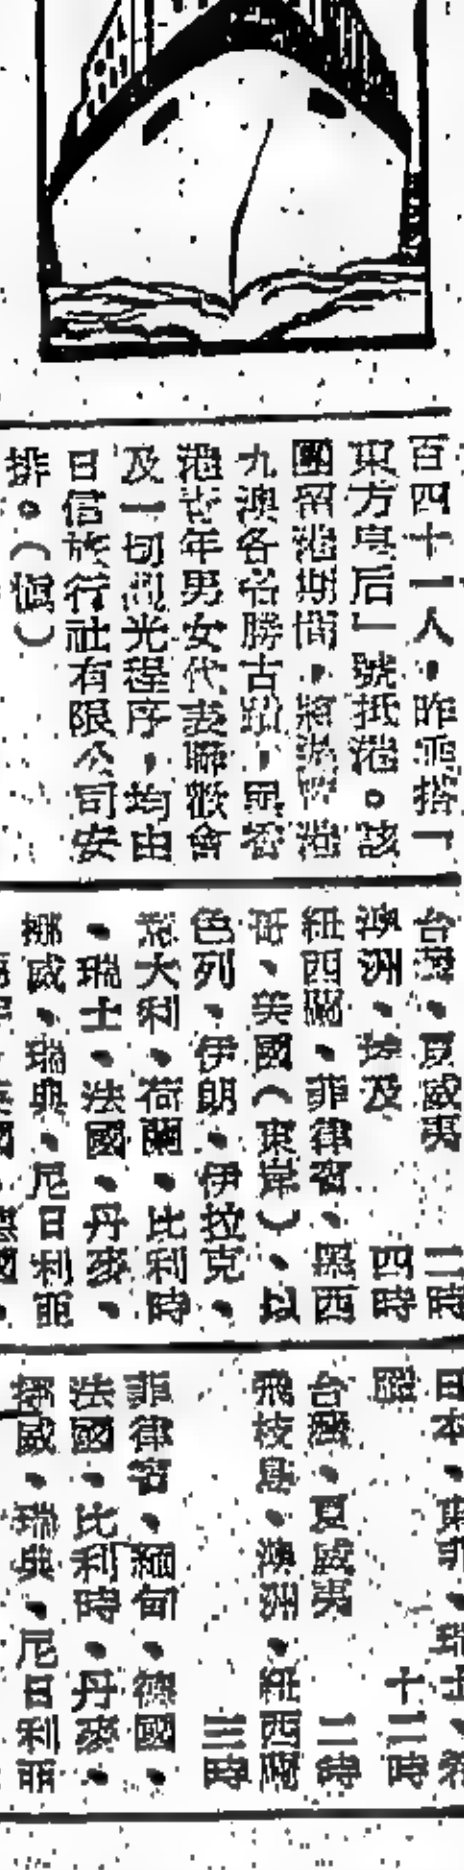 百四十一人，昨乘搭「
東方皇后」號抵港。該
團留港期間，將遊覽港
九澳各名勝古蹟，與香
港青年男女代表聯歡會
及一切觀光程序，均由
日信旅行社有限公司安
排。（慎）
台灣、夏威夷　二時
澳洲、埃及　四時
紐西蘭、菲律賓、墨西
哥、美國（東岸）、以
色列、伊朗、伊拉克、
意大利、荷蘭、比利時
、瑞士、法國、丹麥、
挪威、瑞典、尼日利亞
日本、東非、瑞士、希
臘　十二時
台灣、夏威夷　二時
飛枝島、澳洲、紐西蘭
三時
菲律賓、緬甸、德國、
法國、比利時、丹麥、
挪威、瑞典、尼日利亞